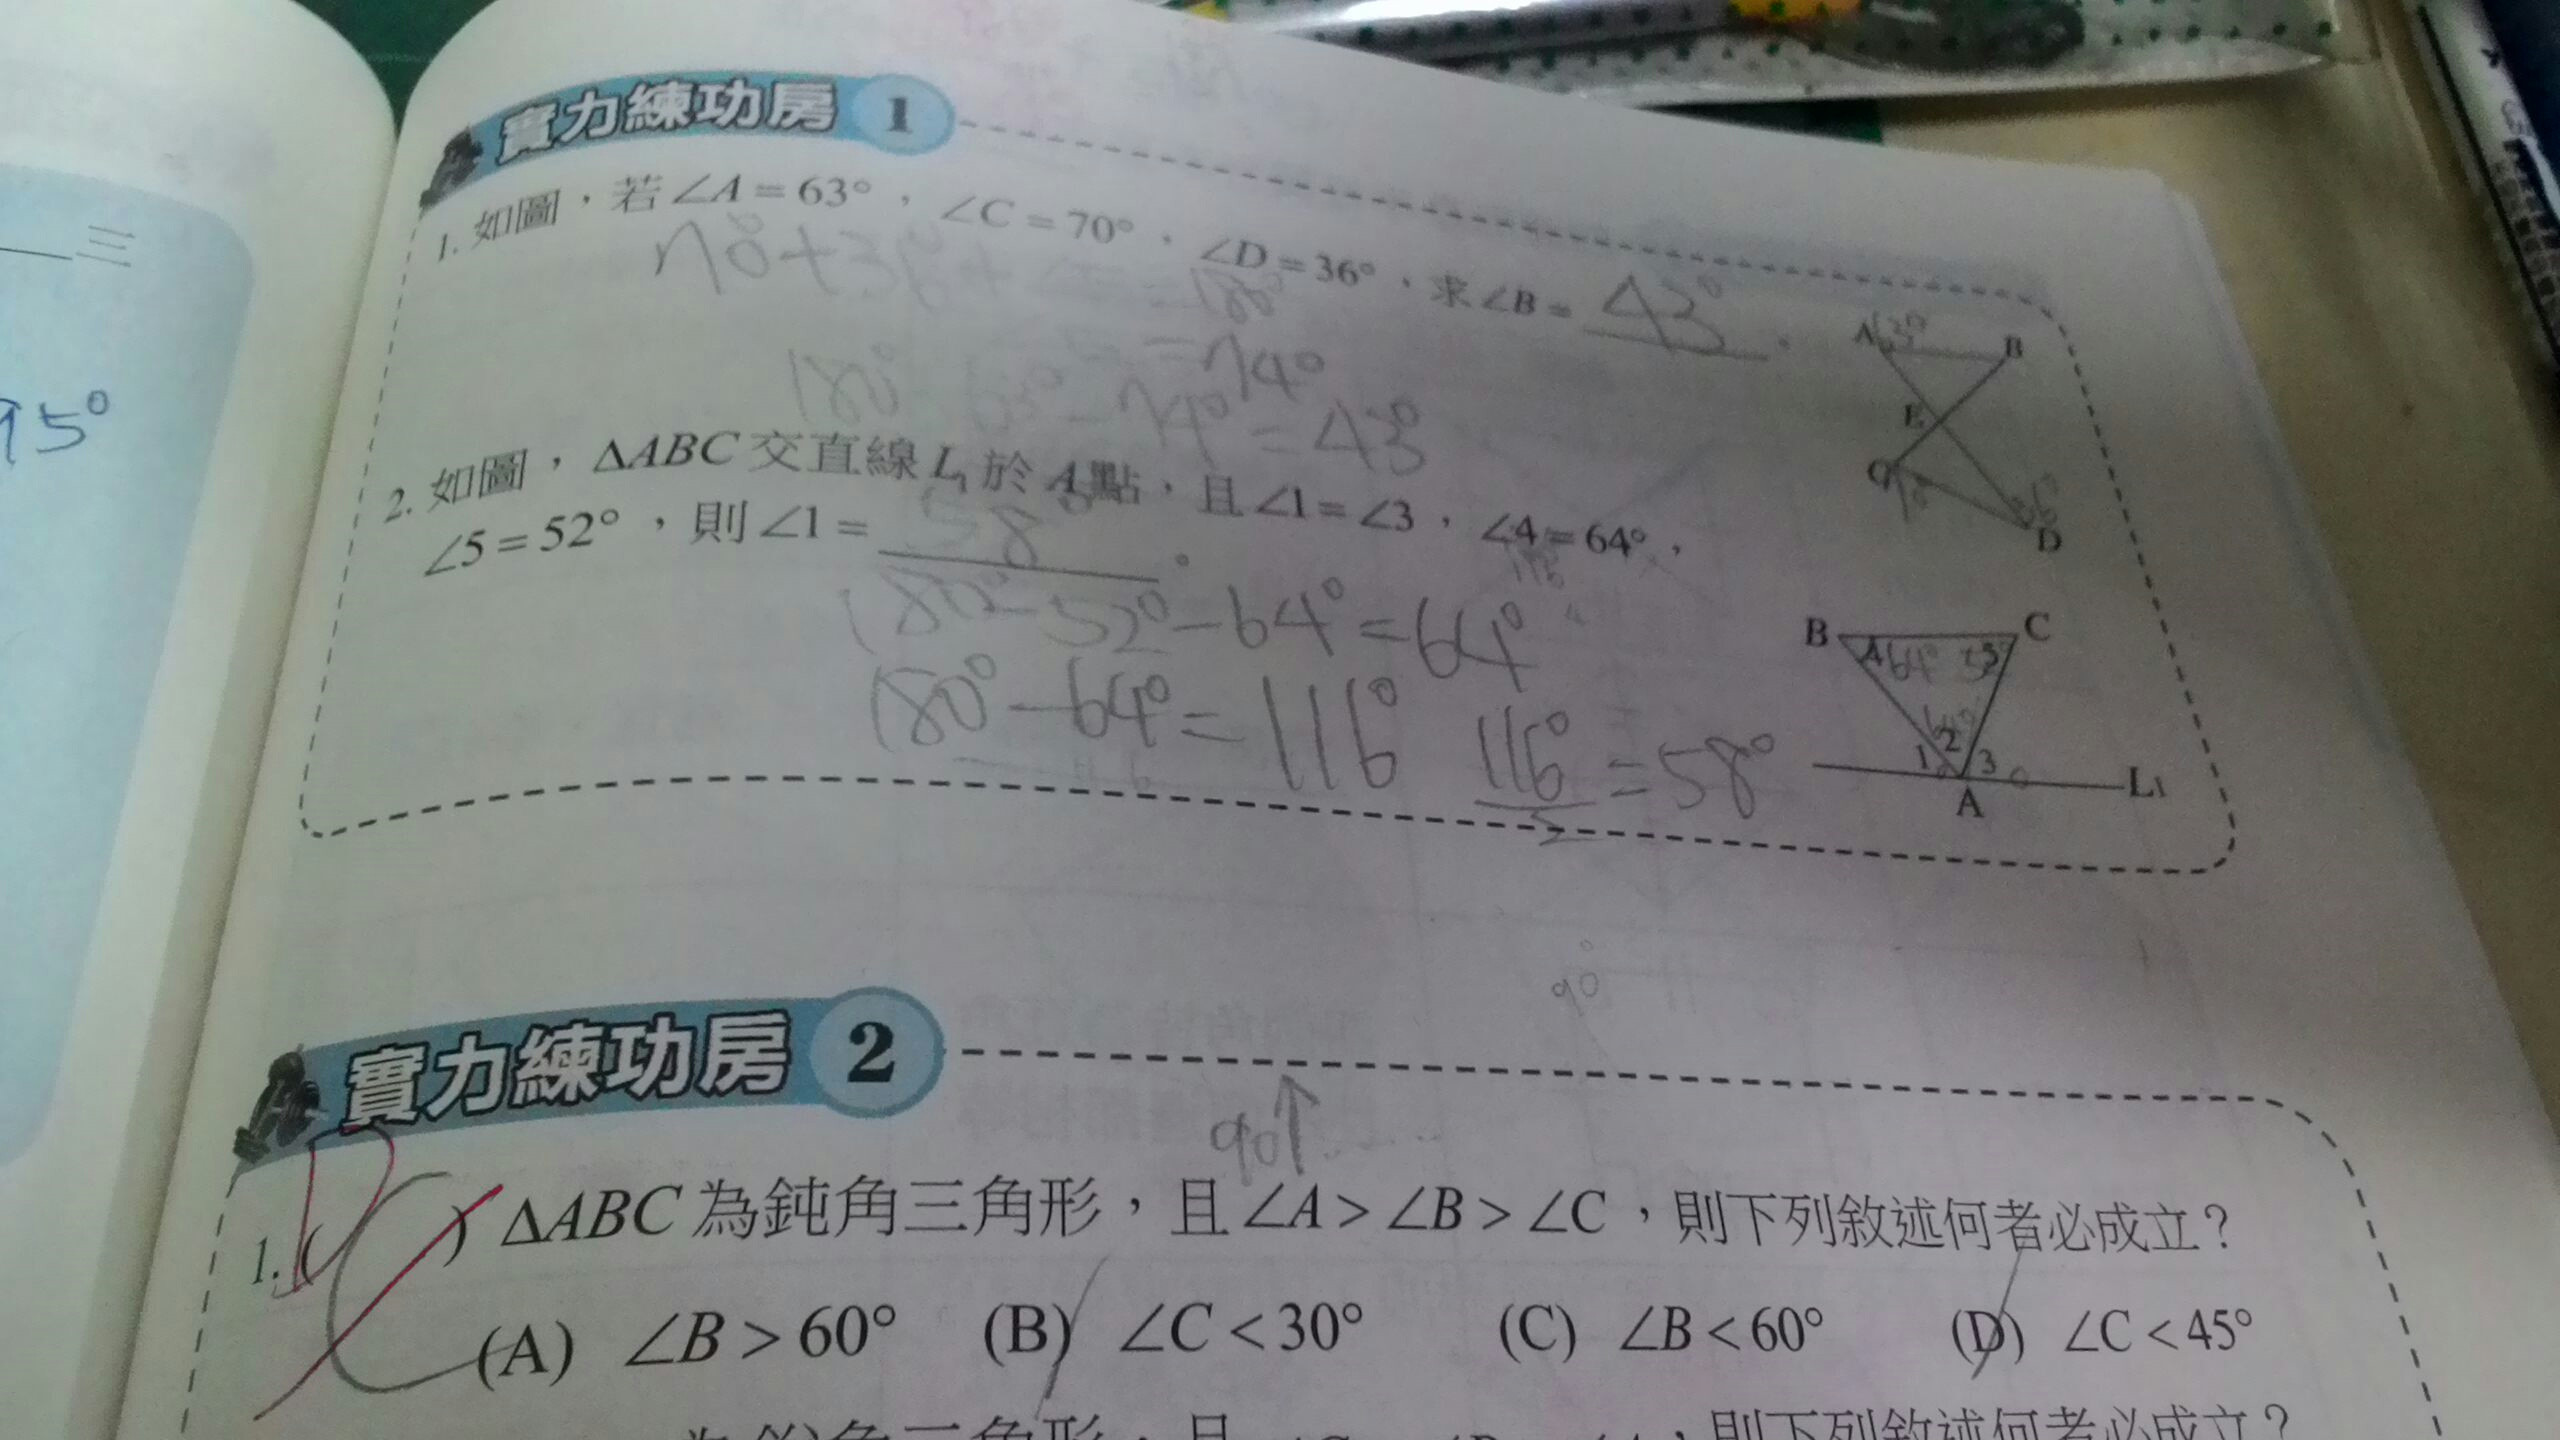 三
95°
實力練功房 1
1. 如圖，若∠A=63°，∠C=70°，∠D=36°，求∠B= 43° 。
70°+36°+ =180°
=74°
180°-63°-74°=43°
A 63° B
E
C 70° 36° D
2. 如圖，ΔABC交直線L1於A點，且∠1=∠3，∠4=64°，
∠5=52°，則∠1= 58° 。
180°-52°-64°=64°
180°-64°=116° 116°/2=58°
B 4 64° 5 C
1 2 3
A L1
90°
實力練功房 2
90↑
1. ( C ) D ΔABC為鈍角三角形，且∠A>∠B>∠C，則下列敘述何者必成立？
(A) ∠B>60° (B) ∠C<30° (C) ∠B<60° (D) ∠C<45°
為銳角三角形，且 ，則下列敘述何者必成立？